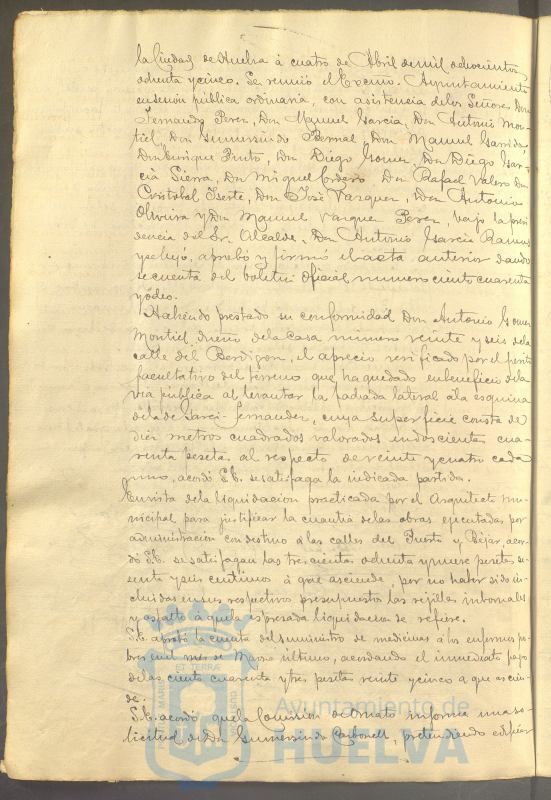 la Ciudad de Huelva á cuatro de Abril de mil ochocientos
ochenta y cinco. Se reunió el Excmo. Ayuntamiento
en sesión pública ordinaria, con asistencia de los Señores Don
Fernando Perez, Don Manuel Garcia, Don Antonio Mon-
tiel, Don Gumersindo Bernal, Don Manuel Garrido
Don Enrique Pinto, Don Diego Gomez, Don Diego Gar-
cia Sierra, Don Miguel Cordero Don Rafael Valero Don
Cristobal Iserte, Don José Vazquez, Don Antonio
Oliveira y Don Manuel Vazquez Perez, bajo la presi-
dencia del Sr. Alcalde, Don Antonio Garcia Ramos
y se leyó, aprobó y firmó el acta anterior dando
se cuenta del boletin oficial numero ciento cuarenta
y ocho.
Habiendo prestado su conformidad Don Antonio Gomez
Montiel dueño de la casa numero veinte y seis de la
calle del Berdigon, el aprecio verificado por el perito
facultativo del terreno que ha quedado en beneficio de la
via pública al levantar la fachada lateral á la esquina
de la de Garci-Fernandez, cuya superficie consta de
diez metros cuadrados valorados en doscientas cua-
renta pesetas al respecto de veinte y cuatro cada
uno, acordó S.E. se satisfaga la indicada partida.
En vista de la liquidacion practicada por el Arquitecto mu-
nicipal para justificar la cuantia de las obras ejecutadas por
administracion con destino á las calles del Puerto y Béjar acor-
dó S.E. se satisfagan las trescientas ochenta y nueve pesetas se-
senta y seis centimos á que asciende, por no haber sido in-
cluidas en sus respectivos presupuestos las rejillas
y asfalto á que la espresada liquidacion se refiere.
S.E. aprobó la cuenta del suministro de medicinas á los enfermos po-
bres en el mes de Marzo último, acordando el inmediato pago
de las ciento cuarenta y tres pesetas veinte y cinco a que ascien-
de.
S.E. acordó que la Comision de Ornato informe una so-
licitud de Dn Gumersindo Carbonell, pretendiendo edificar
PORTUS MARIS ET TERRAE CUSTODIA
Ayuntamiento de
HUELVA